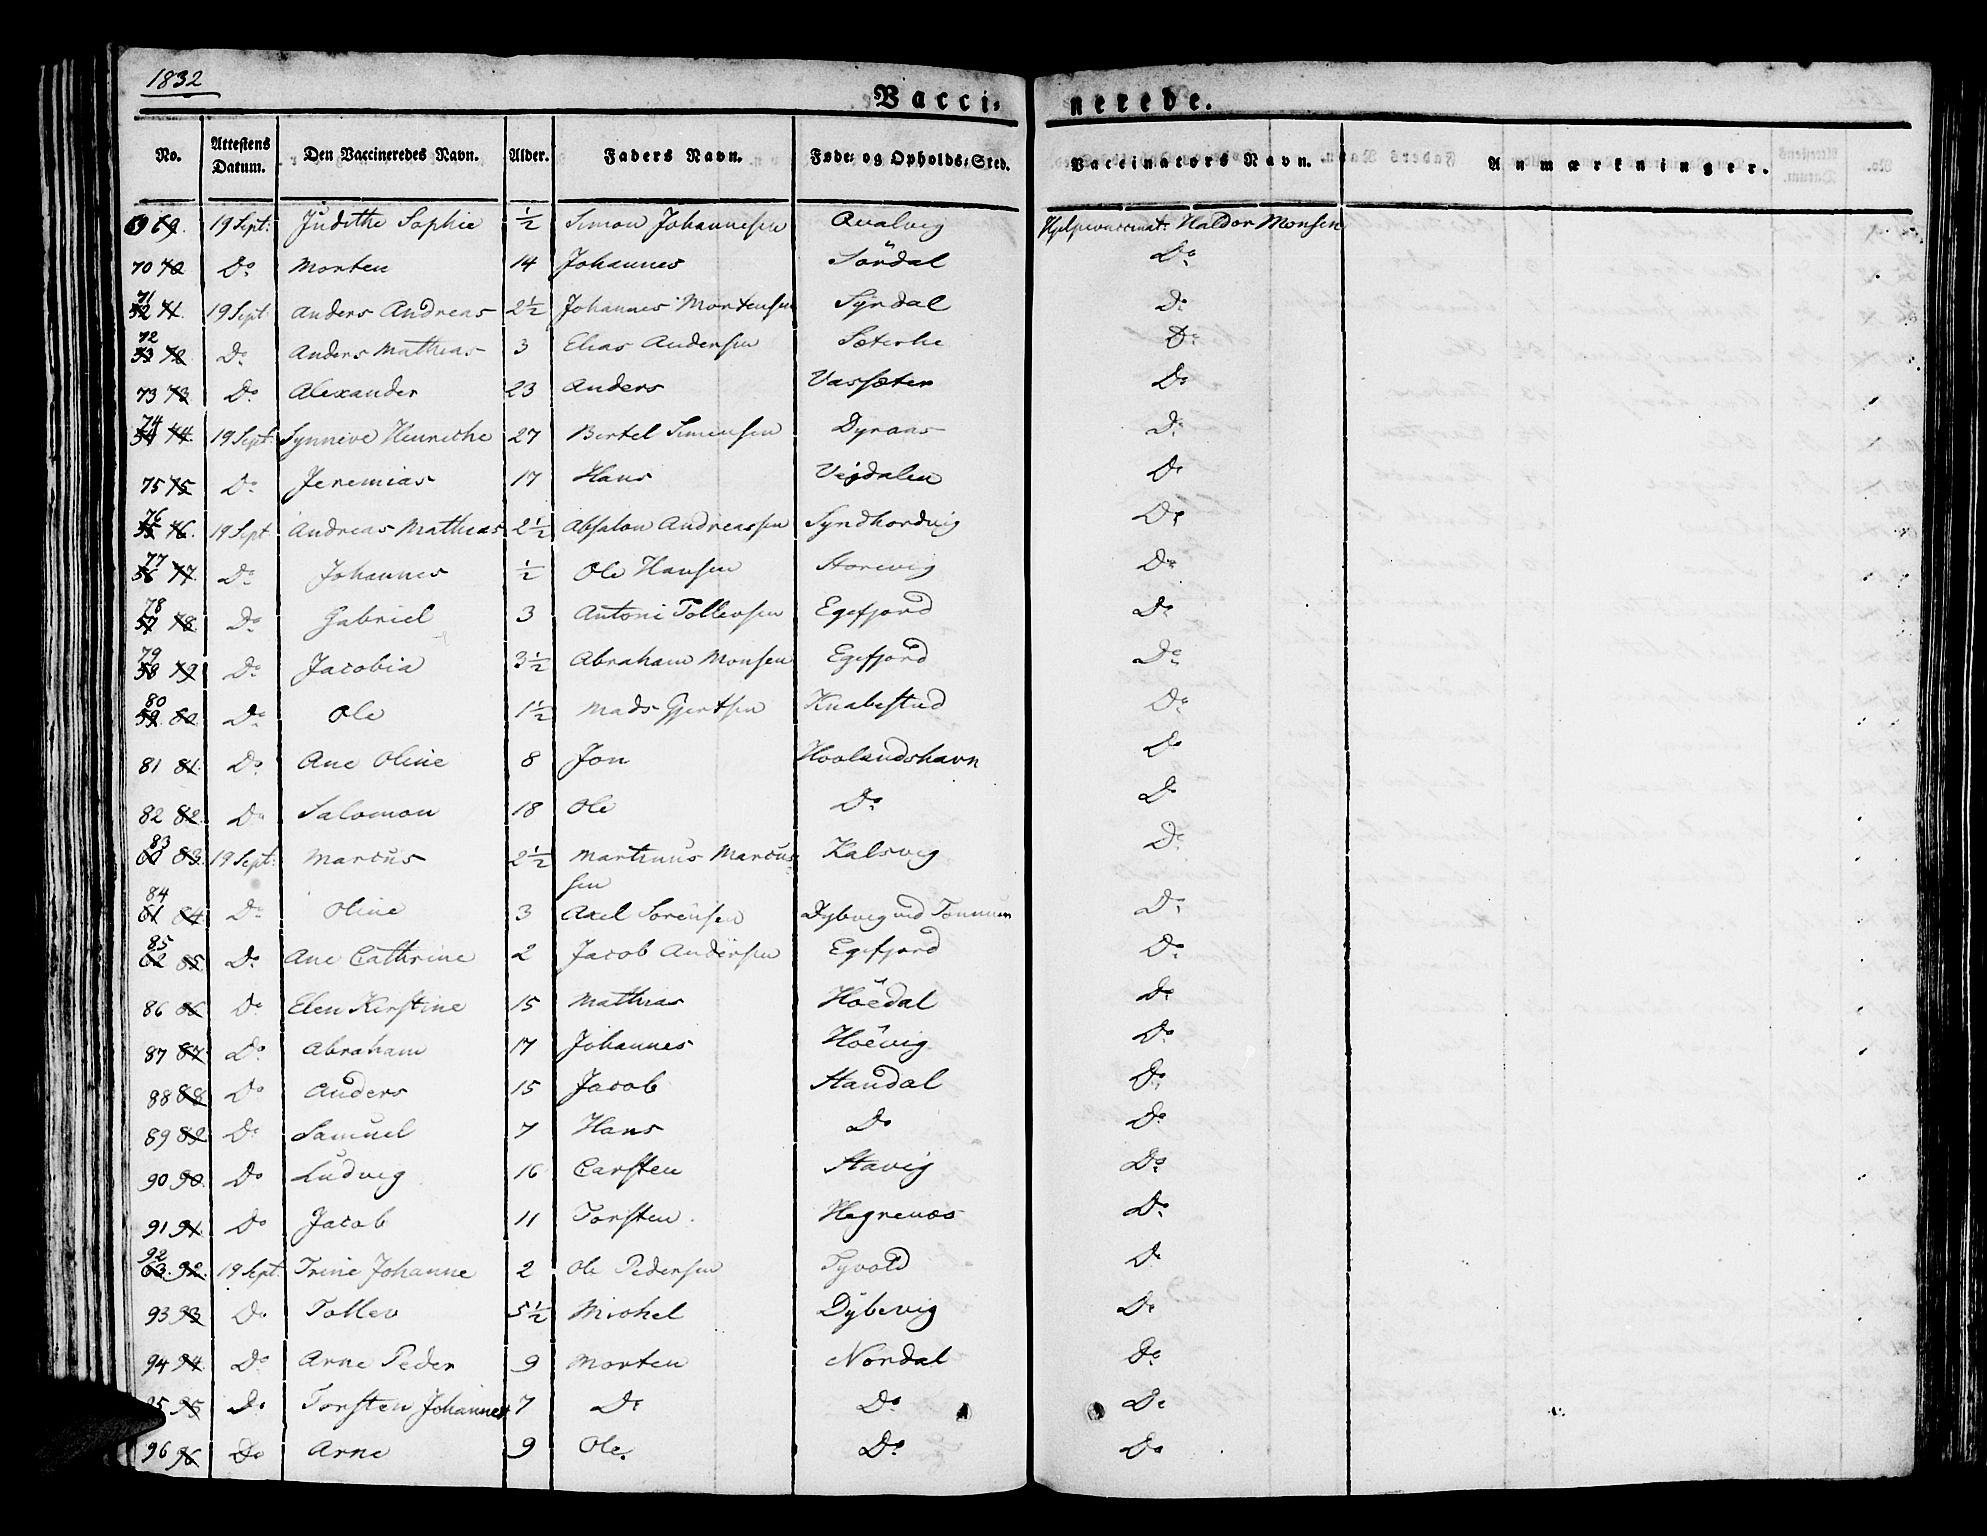 1832
Vaccinerede.
No. Attestens Datum. Den Vaccineredes Navn. Alder. Faders Navn. Føde- og Opholds-Sted. Vaccinators Navn. Anmærkninger.
69. 19 Sept: Judithe Sophie ½ Simon Johannesen Qvalvig Hjelpevaccinat: Haldor Monsen
70 70 Do Morten 14 Johannes Sördal Do
71 52 71. 19 Sept Anders Andreas 2½ Johannes Mortensen Syrdal Do
72 53 72 Do Anders Mathias 3 Elias Andersen Do
73 73 Do Alexander 23 Anders Vassæter Do
74 54 74. 19 Sept. Synneve Henrethe 27 Bertel Simensen Dyraas Do
75 75 Do Jeremias 17 Hans Vejdalen Do
76 55 76. 19 Sept Andreas Mathias 2½ Absalon Andreassen Syndhordvig Do
77 56 77. Do Johannes ½ Ole Hansen Storevig Do
78 57 78. Do Gabriel 3 Antoni Tollevsen Egefjord Do
79 58 79. Do Jacobia 3½ Abraham Monsen Egefjord Do
80 59 80. Do Ole 1½ Mads Gjertsen Knabestad Do
81 81. Do Ane Oline 8 Jon Hovlandshavn Do
82 82. Do Salomon 18 Ole Do Do
83 60 83. 19 Sept: Marcus 2½ Martinus Marcus-
sen Kalsvig Do
84 61 84. Do Oline 3 Axel Sörensen Dybvig ved Do
85 62 85. Do Ane Cathrine 2 Jacob Andersen Egefjord Do
86 86 Do Elen Kirstine 15 Mathias Höedal Do
87 87 Do Abraham 17 Johannes Höevig Do
88 88 Do Anders 15 Jacob Standal Do
89 89 Do Samuel 7 Hans Do Do
90 90. Do Ludvig 16 Carsten Stavig Do
91 91. Do Jacob 11 Torsten. Hegrenæs Do
92 63. 92. 19 Sept. Trine Johanne 2 Ole Pedersen Tyvold Do
93 93 Do Tollev 5½ Michel Dybevig Do
94 94. Do Arne Peder 9 Morten Nordal Do
95 95 Do Torsten Johannes 7 Do Do Do
96 96 Do Arne 9 Ole. Do Do